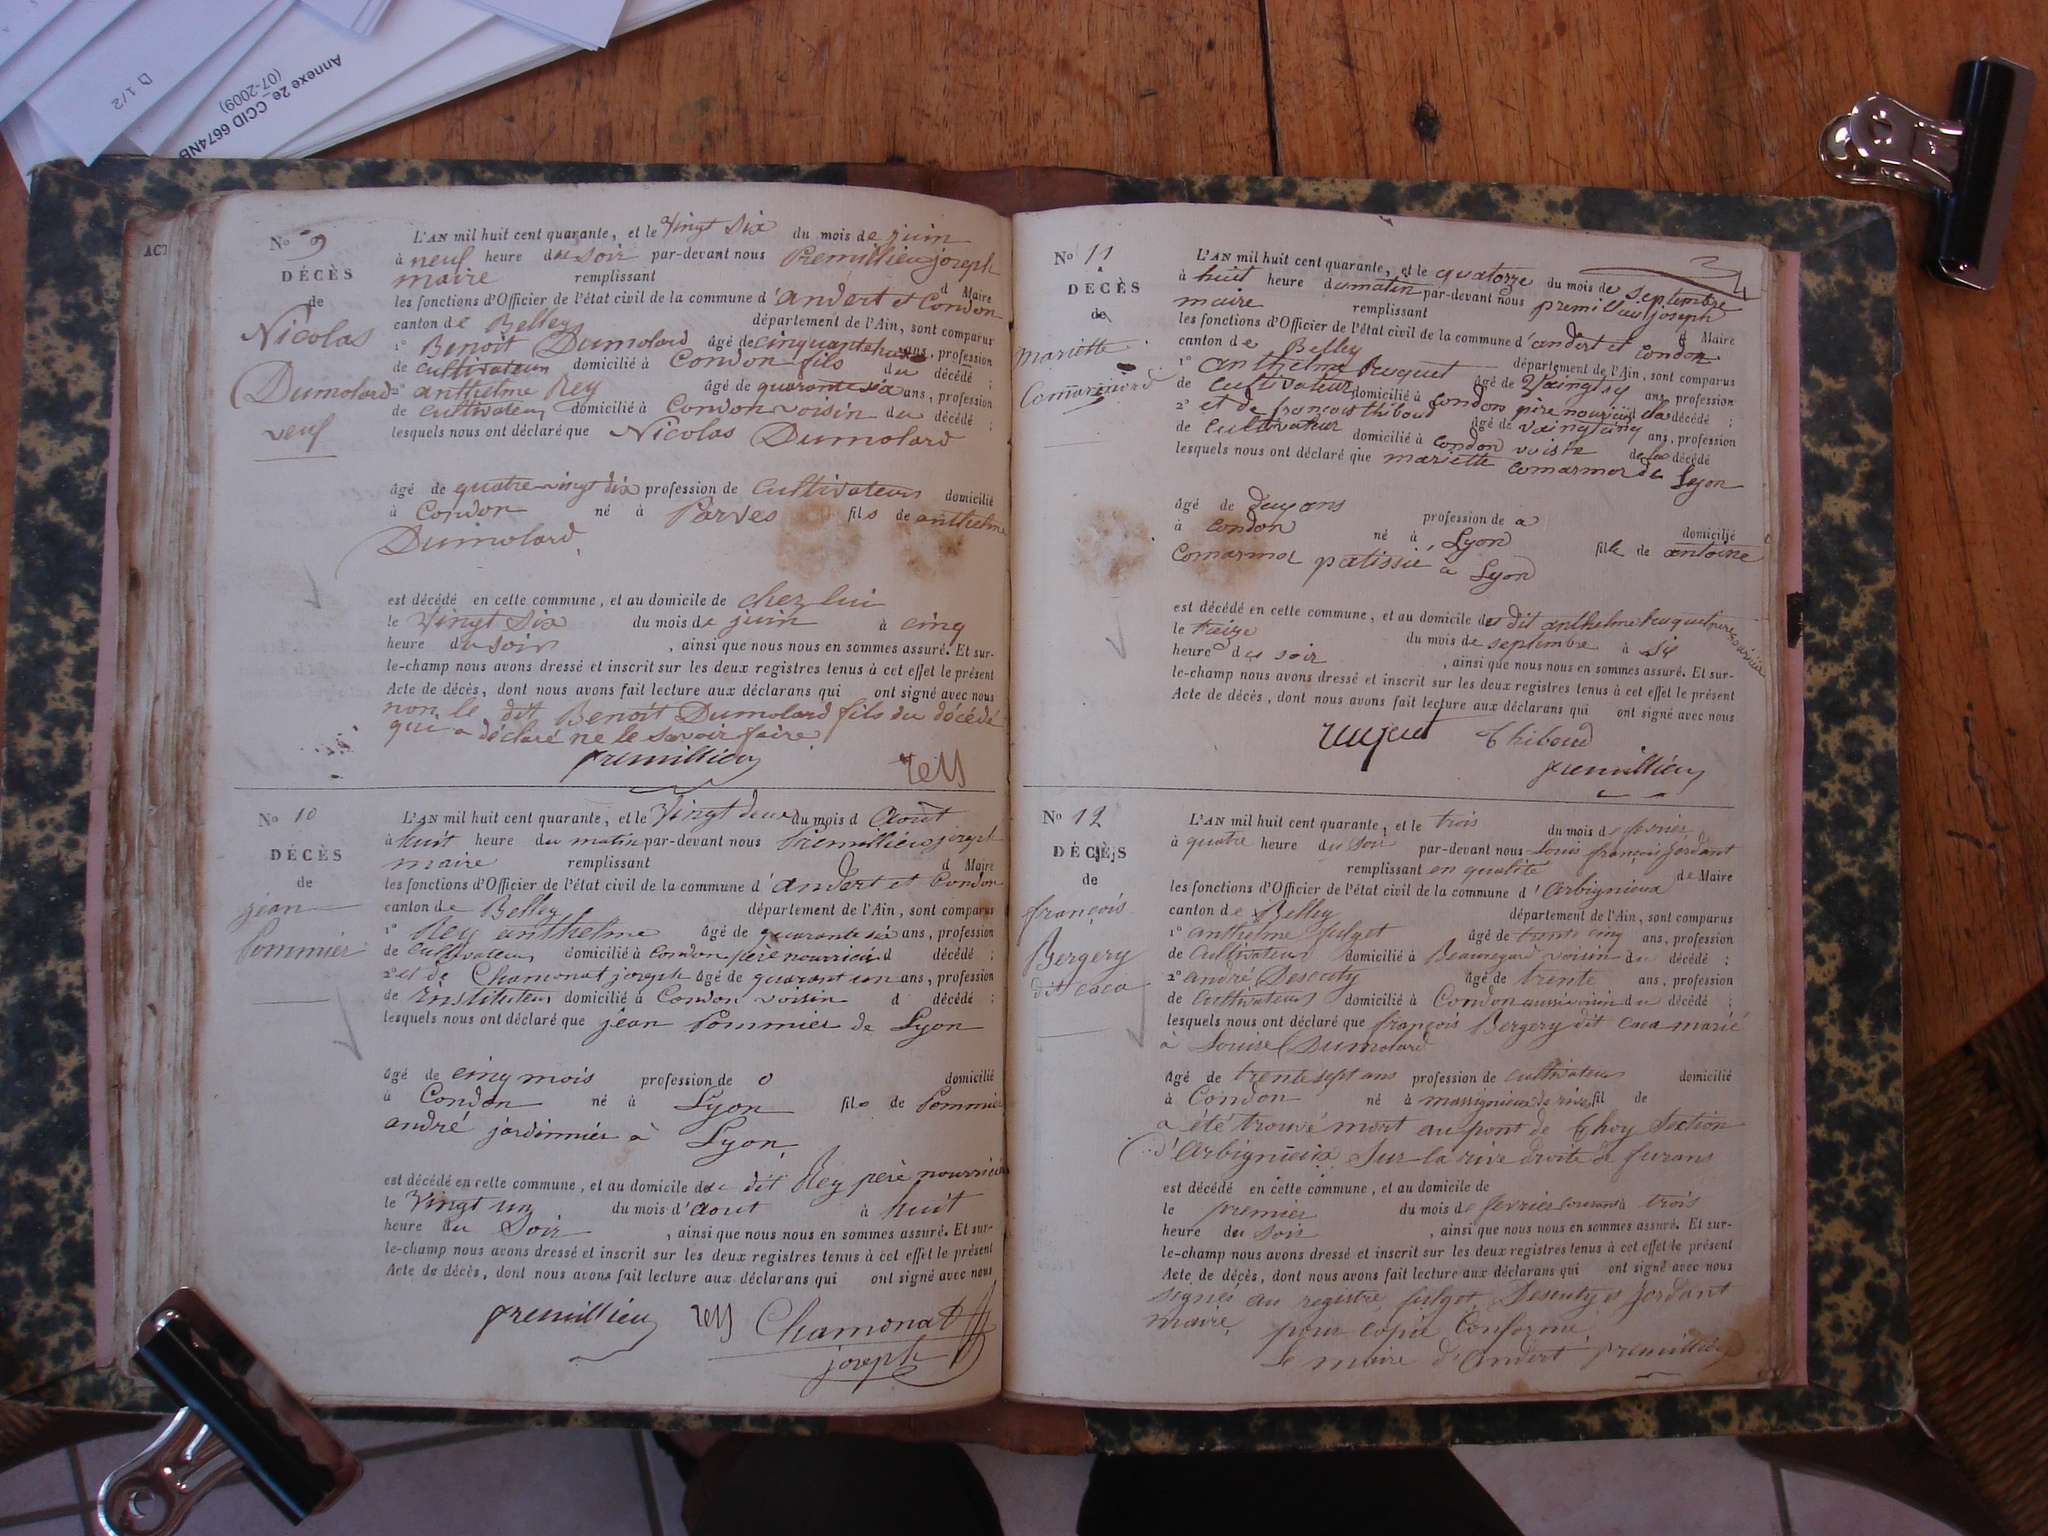 D 1/2
Annexe 2e_CCID 6674NB
(07-2009)
ACT
No 9
DÉCÈS
de
Nicolas
Dumolard
veuf
L'AN mil huit cent quarante, et le Vingt Six du mois de juin
à neuf heure du soir par-devant nous Premillieu joseph
maire remplissant d Maire
les fonctions d'Officier de l'état civil de la commune d'andert et Condon
canton de Belley département de l'Ain, sont comparus
1° Benoit Dumolard âgé de cinquante ans, profession
de cultivateur domicilié à Condon fils du décédé ;
2° anthelme Rey âgé de quarante six ans, profession
de cultivateur domicilié à Condon voisin du décédé ;
lesquels nous ont déclaré que Nicolas Dumolard
âgé de quatre vingt dix profession de Cultivateur domicilié
à Condon né à Parves fils de anthelme
Dumolard
est décédé en cette commune, et au domicile de chez lui
le Vingt Six du mois de juin à cinq
heure du soir , ainsi que nous nous en sommes assuré. Et sur-
le-champ nous avons dressé et inscrit sur les deux registres tenus à cet effet le présent
Acte de décès, dont nous avons fait lecture aux déclarans qui ont signé avec nous
non le dit Benoit Dumolard fils du décédé
qui a déclaré ne le savoir faire
premillieu rey
No 10
DÉCÈS
de
jean
Pommier
L'AN mil huit cent quarante, et le Vingt deux du mois d Août
à huit heure du matin par-devant nous Premillieu joseph
maire remplissant d Maire
les fonctions d'Officier de l'état civil de la commune d'andert et Condon
canton de Belley département de l'Ain, sont comparus
1° Rey anthelme âgé de quarante six ans, profession
de cultivateur domicilié à Condon père nourricié d décédé ;
2° et de Chamonat joseph âgé de quarant un ans, profession
de instituteur domicilié à Condon voisin d décédé ;
lesquels nous ont déclaré que jean Pommier de Lyon
âgé de cinq mois profession de o domicilié
à Condon né à Lyon fils de Pommier
andré jardinnier à Lyon
est décédé en cette commune, et au domicile de dit Rey père nourricié
le Vingt un du mois d'aout à huit
heure du Soir , ainsi que nous nous en sommes assuré. Et sur-
le-champ nous avons dressé et inscrit sur les deux registres tenus à cet effet le présent
Acte de décès, dont nous avons fait lecture aux déclarans qui ont signé avec nous
premillieu rey Chamonat
joseph
No 11
DÉCÈS
de
mariette
Comarmord
L'AN mil huit cent quarante, et le quatorze du mois de septembre
à huit heure du matin par-devant nous premillieu joseph
maire remplissant d Maire
les fonctions d'Officier de l'état civil de la commune d'andert et Condon
canton de Belley département de l'Ain, sont comparus
1° anthelme huguet âgé de ans, profession
de Cultivateur domicilié à Condon père nouricié de la décédé ;
2° et de françois thiboud âgé de vaingt cinq ans, profession
de Cultivateur domicilié à condon voisin de la décédé
lesquels nous ont déclaré que mariette comarmor de Lyon
âgé de deux ans profession de a domicilié
à condon né à Lyon fille de antoine
Comarmor patissié a Lyon
est décédé en cette commune, et au domicile de dit anthelme huguet père nouricié
le treize du mois de septembre à six
heure du soir , ainsi que nous nous en sommes assuré. Et sur-
le-champ nous avons dressé et inscrit sur les deux registres tenus à cet effet le présent
Acte de décès, dont nous avons fait lecture aux déclarans qui ont signé avec nous
Thiboud
premillieu
No 12
DÉCÈS
de
françois
Bergery
dit caca
L'AN mil huit cent quarante, et le trois du mois de fevrier
à quatre heure du soir par-devant nous Louis françois jordant
remplissant en qualité de Maire
les fonctions d'Officier de l'état civil de la commune d'Arbignieux
canton de Belley département de l'Ain, sont comparus
1° anthelme fulget âgé de trente cinq ans, profession
de Cultivateur domicilié à Beauregard voisin du décédé ;
2° andré Descuty âgé de trente ans, profession
de Cultivateur domicilié à Condon aussi voisin du décédé ;
lesquels nous ont déclaré que françois Bergery dit caca marié
a Louise Dumolard
âgé de trente sept ans profession de cultivateur domicilié
à Condon né à massignieux de rives fil de
a été trouvé mort au pont de thoy section
d'Arbignieux Sur la rive droite de furans
est décédé en cette commune, et au domicile de
le premier du mois de fevrier courant à trois
heure du soir , ainsi que nous nous en sommes assuré. Et sur-
le-champ nous avons dressé et inscrit sur les deux registres tenus à cet effet le présent
Acte de décès, dont nous avons fait lecture aux déclarans qui ont signé avec nous
signés au registre fulget, Descuty et jordant
maire, pour copie conforme
Le maire d'andert premillieu